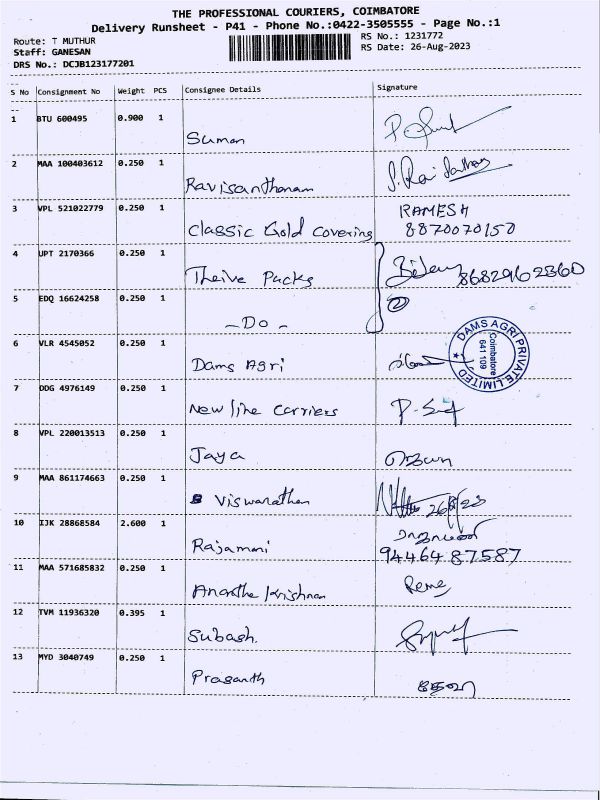 THE PROFESSIONAL COURIERS, COIMBATORE
Delivery Runsheet - P41 - Phone No.:0422-3505555 - Page No.:1
Route: T MUTHUR
Staff: GANESAN
DRS No.: DCJB123177201
RS No.: 1231772
RS Date: 26-Aug-2023
S No Consignment No Weight PCS Consignee Details Signature
1 BTU 600495 0.900 1
Suman
2 MAA 100403612 0.250 1
Ravisanthanam
3 VPL 521022779 0.250 1 RAMESH
Classic Gold Covering 8870070150
4 UPT 2170366 0.250 1
Theive Packs 8682962360
5 EDQ 16624258 0.250 1 2
- Do -
6 VLR 4545052 0.250 1
Dams Agri
DAMS AGRI PRIVATE LIMITED
Coimbatore
641 109
7 DDG 4976149 0.250 1
New line Carriers
8 VPL 220013513 0.250 1
Jaya
9 MAA 861174663 0.250 1
Viswanathan 26/8/23
10 IJK 28868584 2.600 1
Rajamani 94464 87587
11 MAA 571685832 0.250 1
Anantha Krishnan
12 TVM 11936320 0.395 1
Subash.
13 MYD 3040749 0.250 1
Prasanth